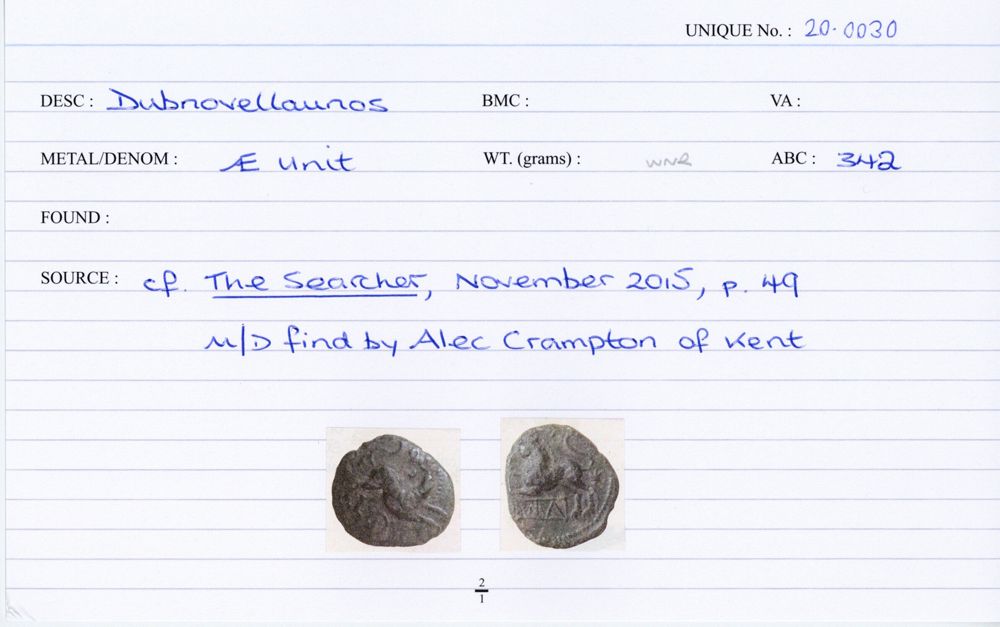 UNIQUE No. : 20.0030
DESC : Dubnovellaunos BMC : VA :
METAL/DENOM : Æ unit WT. (grams) : WNR ABC : 342
FOUND :
SOURCE : cf. The Searcher, November 2015, p. 49
M/D find by Alec Crampton of Kent
2
1